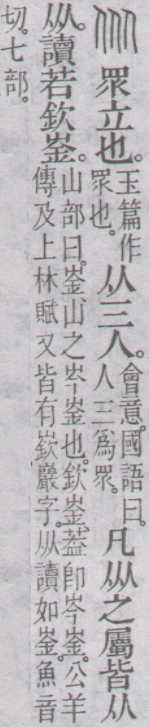 㐺眾立也。玉篇作眾也。从三人。會意。國語曰。人三爲眾。凡㐺之屬皆从
㐺。讀若欽崟。山部曰。崟山之岑崟也。欽崟葢卽岑崟。公羊傳及上林賦又皆有嶔巖字。㐺讀如崟。魚音
切。七部。